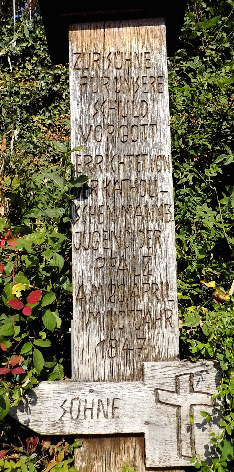 ZUR SÜHNE
FÜR UNSERE
SCHULD
VOR GOTT
ERRICHTET VON
DER KATHOLI-
SCHEN MANNES
JUGEND DER
PFALZ
AN CHRISTI
1947
SÜHNE